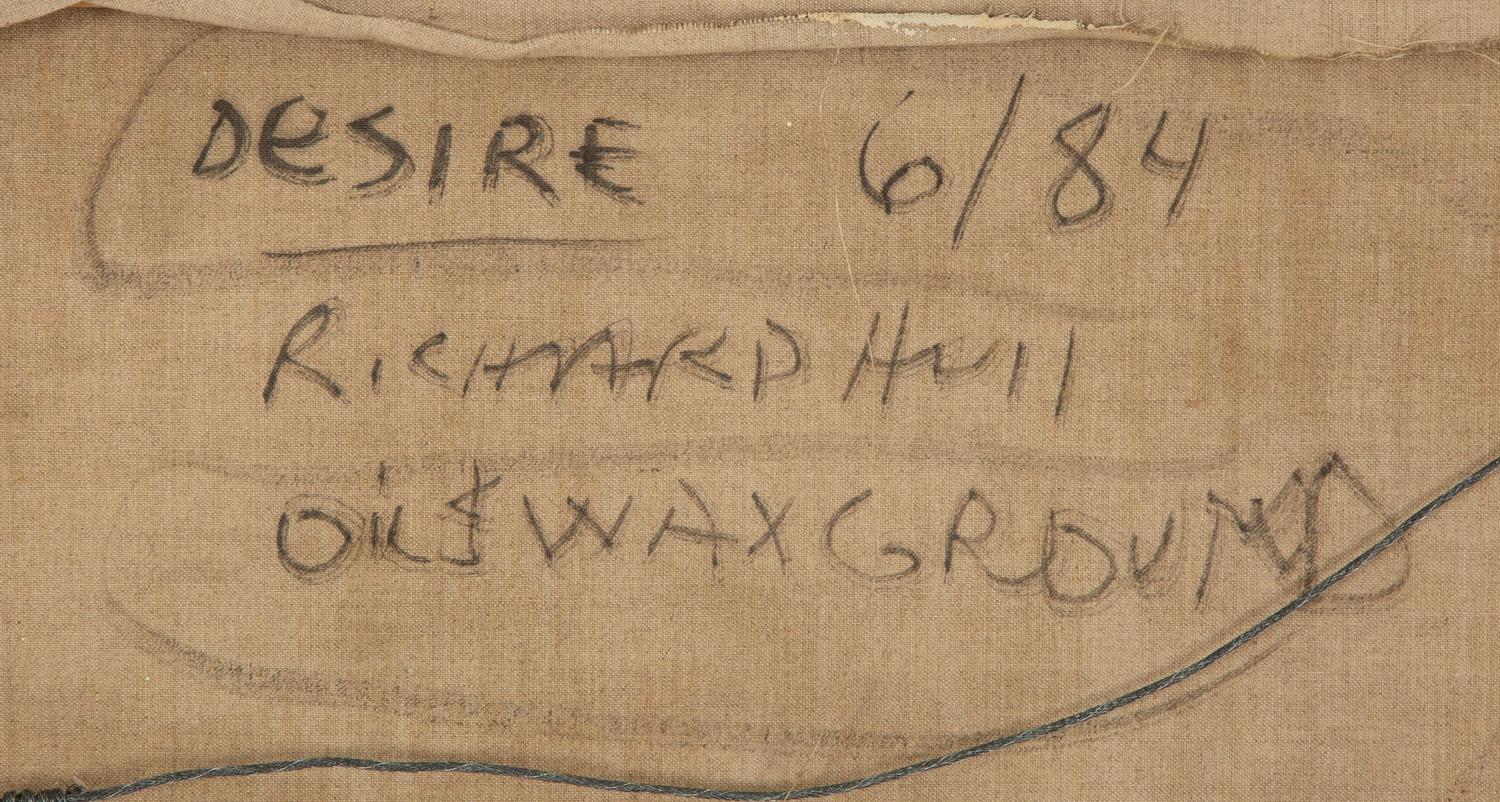 DeSIRE 6/84
RiCHARD Hull
OIL & WAX GROUND